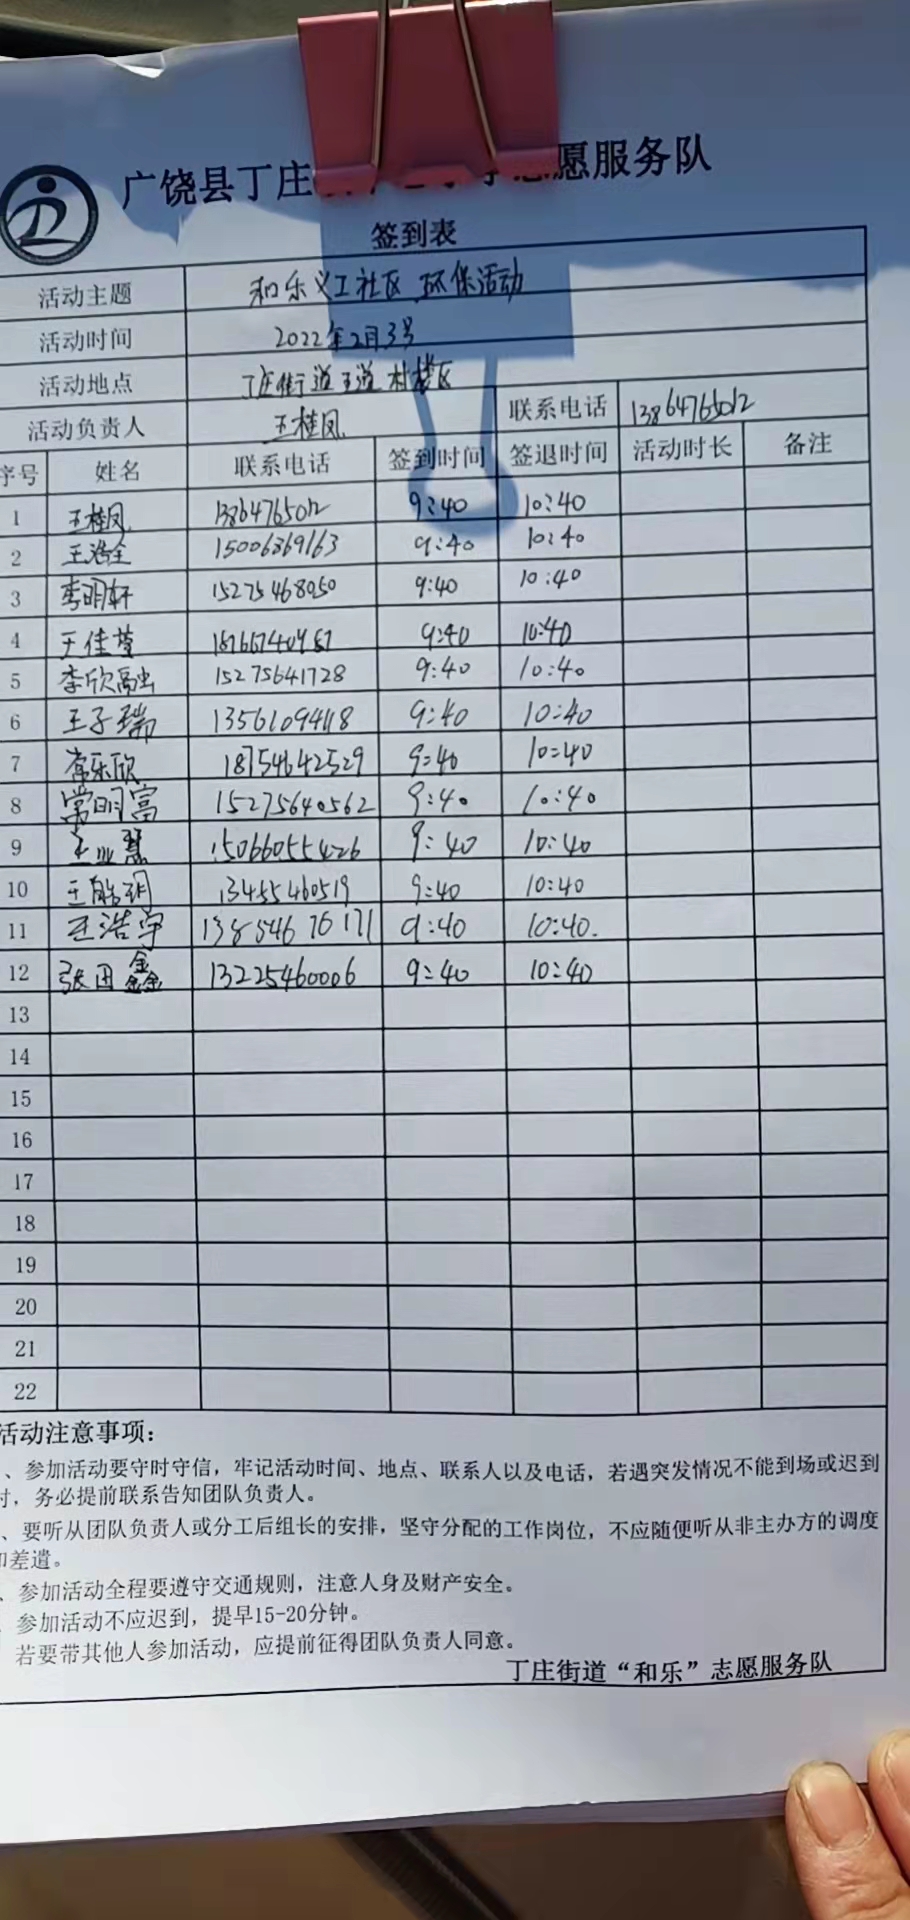 广饶县丁庄 志愿服务队
签到表
活动主题 和乐义工社区 环保活动
活动时间 2022年2月3号
活动地点 丁庄街道王道村 区
活动负责人 王桂凤 联系电话 13864765012
序号 姓名 联系电话 签到时间 签退时间 活动时长 备注
1 王桂凤 13864765012 9:40 10:40
2 王浩全 15006869163 9:40 10:40
3 李明轩 15275468050 9:40 10:40
4 王佳莹 9:40 10:40
5 李欣 15275641728 9:40 10:40
6 王子瑞 9:40 10:40
7 常乐欣 18754642529 9:40 10:40
8 常明富 15275640562 9:40 10:40
9 王业慧 15066055426 9:40 10:40
10 王 13455460519 9:40 10:40
11 王浩宇 13854676171 9:40 10:40.
12 张田鑫 13225460006 9:40 10:40
13
14
15
16
17
18
19
20
21
22
活动注意事项:
、参加活动要守时守信，牢记活动时间、地点、联系人以及电话，若遇突发情况不能到场或迟到
时，务必提前联系告知团队负责人。
、要听从团队负责人或分工后组长的安排，坚守分配的工作岗位，不应随便听从非主办方的调度
和差遣。
、参加活动全程要遵守交通规则，注意人身及财产安全。
参加活动不应迟到，提早15-20分钟。
若要带其他人参加活动，应提前征得团队负责人同意。
丁庄街道“和乐”志愿服务队